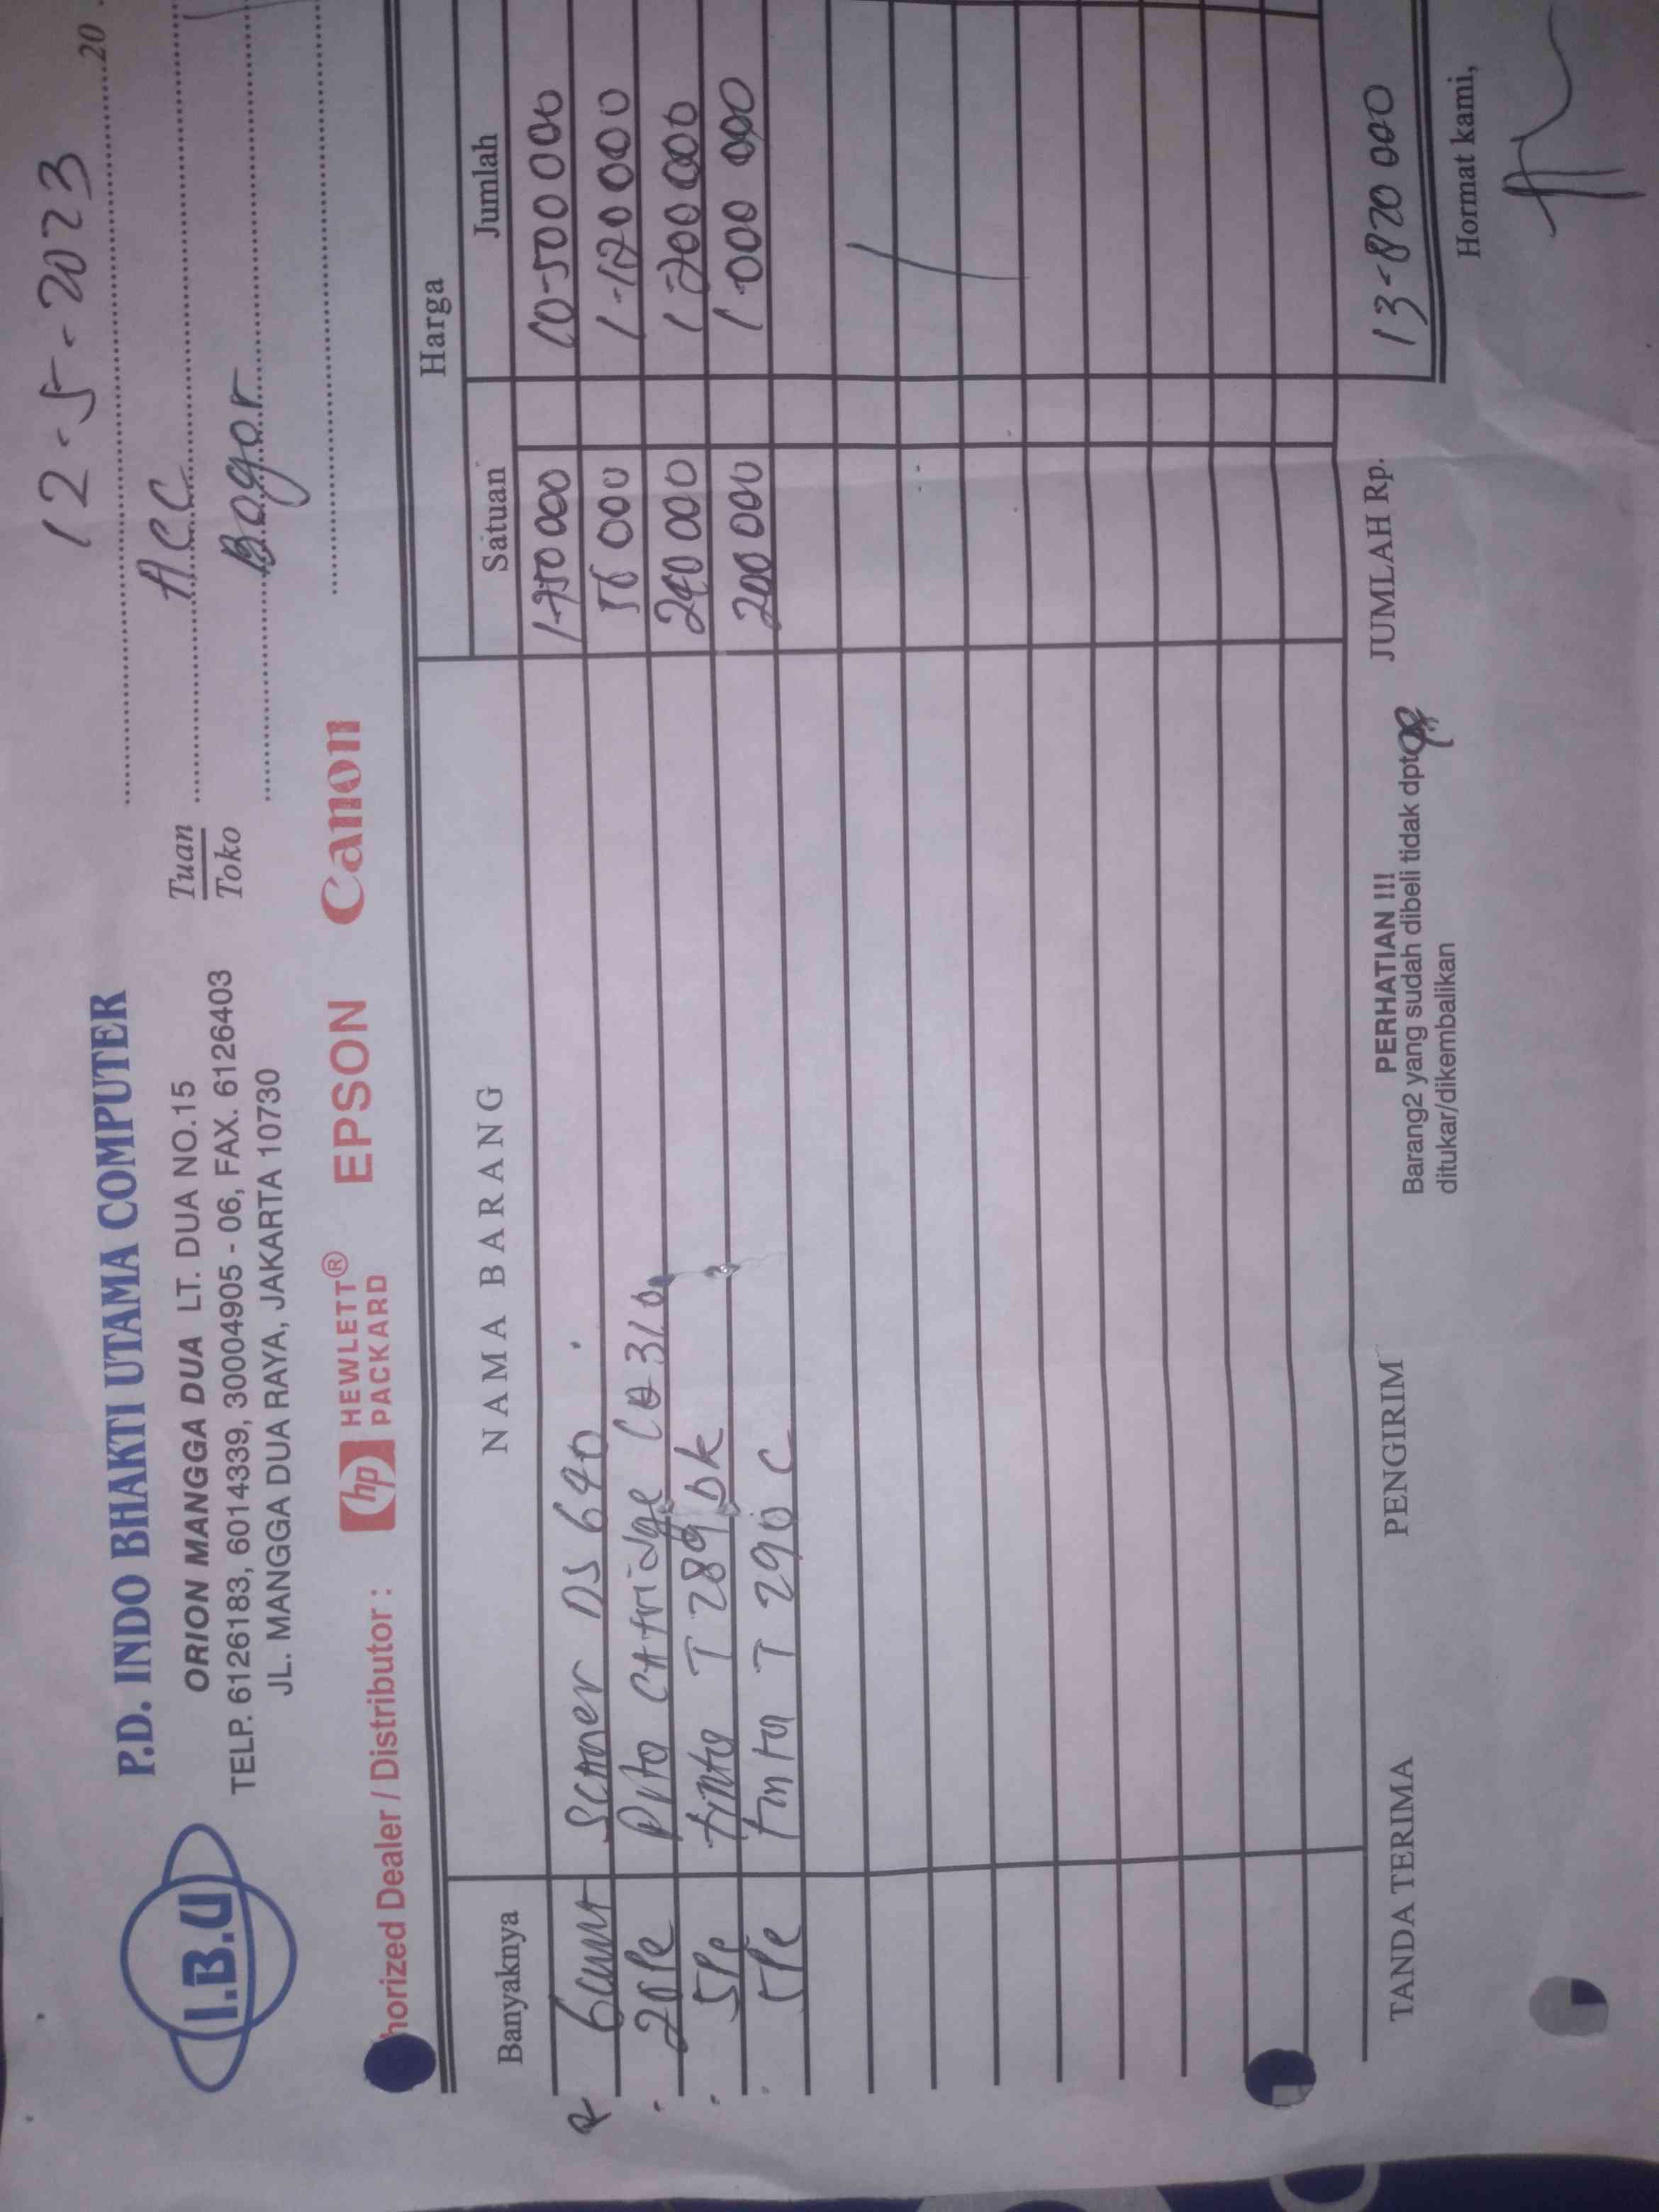 12-5-2023 20
I.B.U
P.D. INDO BHAKTI UTAMA COMPUTER
ORION MANGGA DUA LT. DUA NO.15
TELP. 6126183, 6014339, 30004905 - 06, FAX. 6126403
JL. MANGGA DUA RAYA, JAKARTA 10730
Tuan ACC
Toko Bogor
horized Dealer / Distributor : hp HEWLETT® PACKARD EPSON Canon
Banyaknya NAMA BARANG Harga
Satuan Jumlah
6 unit Scanner DS 640 1-750 000 10-500 000
20 Pc Pita Catridge 56 000 1-120 000
5 Pc tinta T 289 bk 240 000 1 200 000
5 Pc tinta T 290 C 200 000 1 000 000
TANDA TERIMA PENGIRIM PERHATIAN !!! JUMLAH Rp. 13-820 000
Barang2 yang sudah dibeli tidak dpt
ditukar/dikembalikan
Hormat kami,